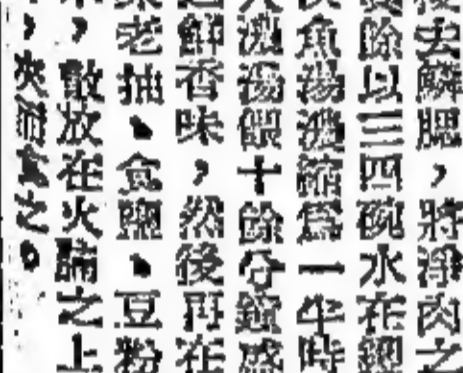 去鱗腮,將淨肉之
餘以三四碗水在鍋
魚湯濃縮爲一半時
濃湯餵十餘分鐘盛
鮮香味,然後再在
老抽、食鹽、豆粉
,散放在火鍋之上
,夾而食之。